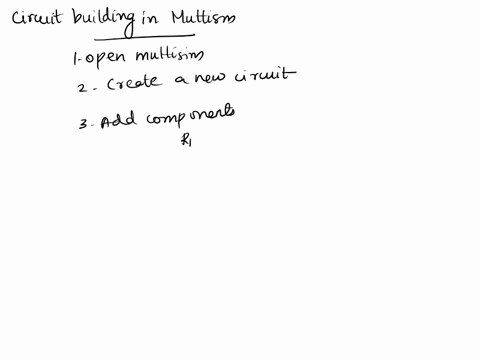 Circuit building in Multism
1. open multisim
2. Create a new circuit
3. Add components
R1